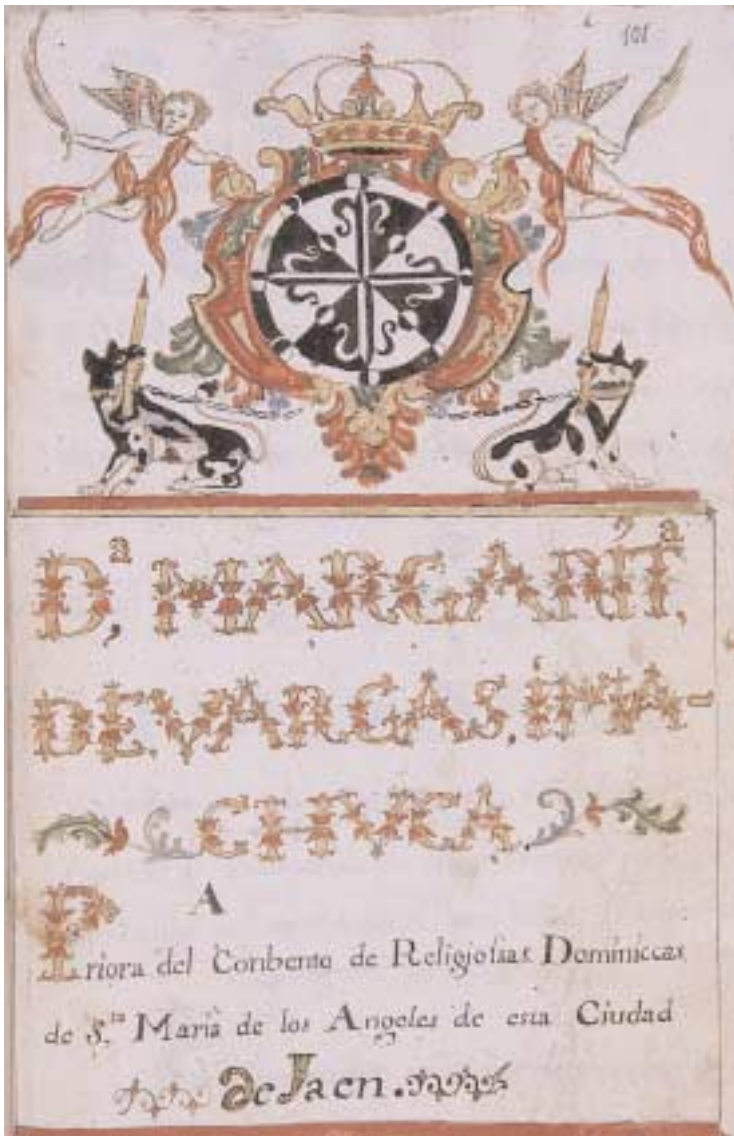 101
D.ª MARGARITª,
DE VARGAS, I MA-
CHVCA.
A
Priora del Conbento de Religiosas Dominiccas
de S.ta Maria de los Angeles de esta Ciudad
de Jaen.